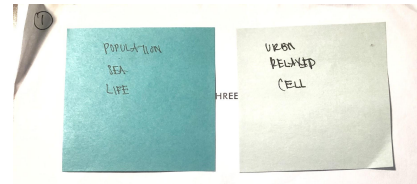 1
POPULATION
SEA
LIFE
HREE
URBN
RELAYED
CELL